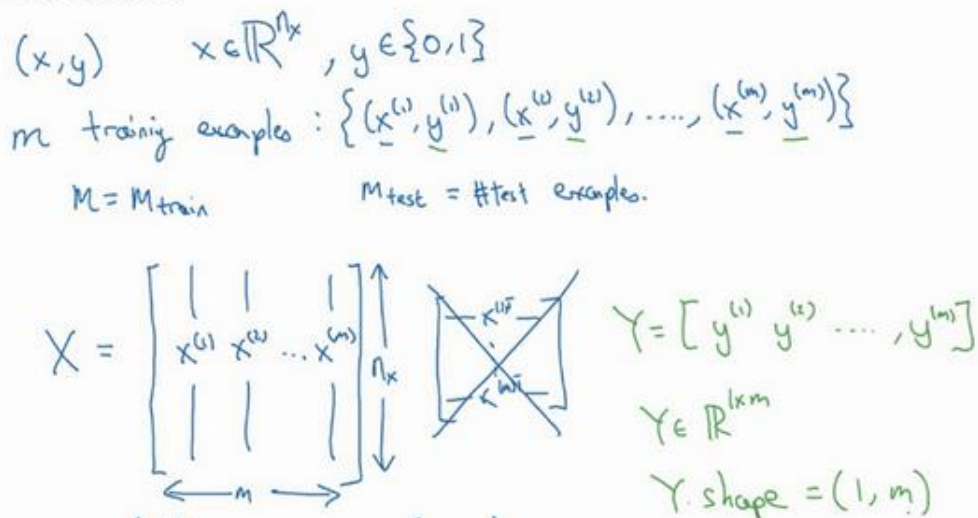 (x,y) x∈ℝ^{n_x} , y∈{0,1}
m trainig examples : {(x^{(1)}, y^{(1)}), (x^{(2)}, y^{(2)}), ...., (x^{(m)}, y^{(m)})}
M = M_{train} M_{test} = #test examples.
X = [ x^{(1)} x^{(2)} ... x^{(m)} ] n_x
m
x^{(1)T}
x^{(m)T}
Y = [ y^{(1)} y^{(2)} .... , y^{(m)} ]
Y ∈ ℝ^{1×m}
Y.shape = (1, m)